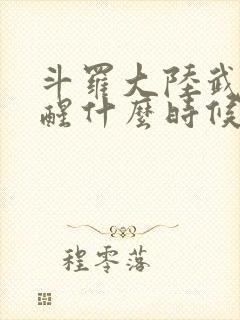 斗羅大陸武
醒什麼時候
程零落